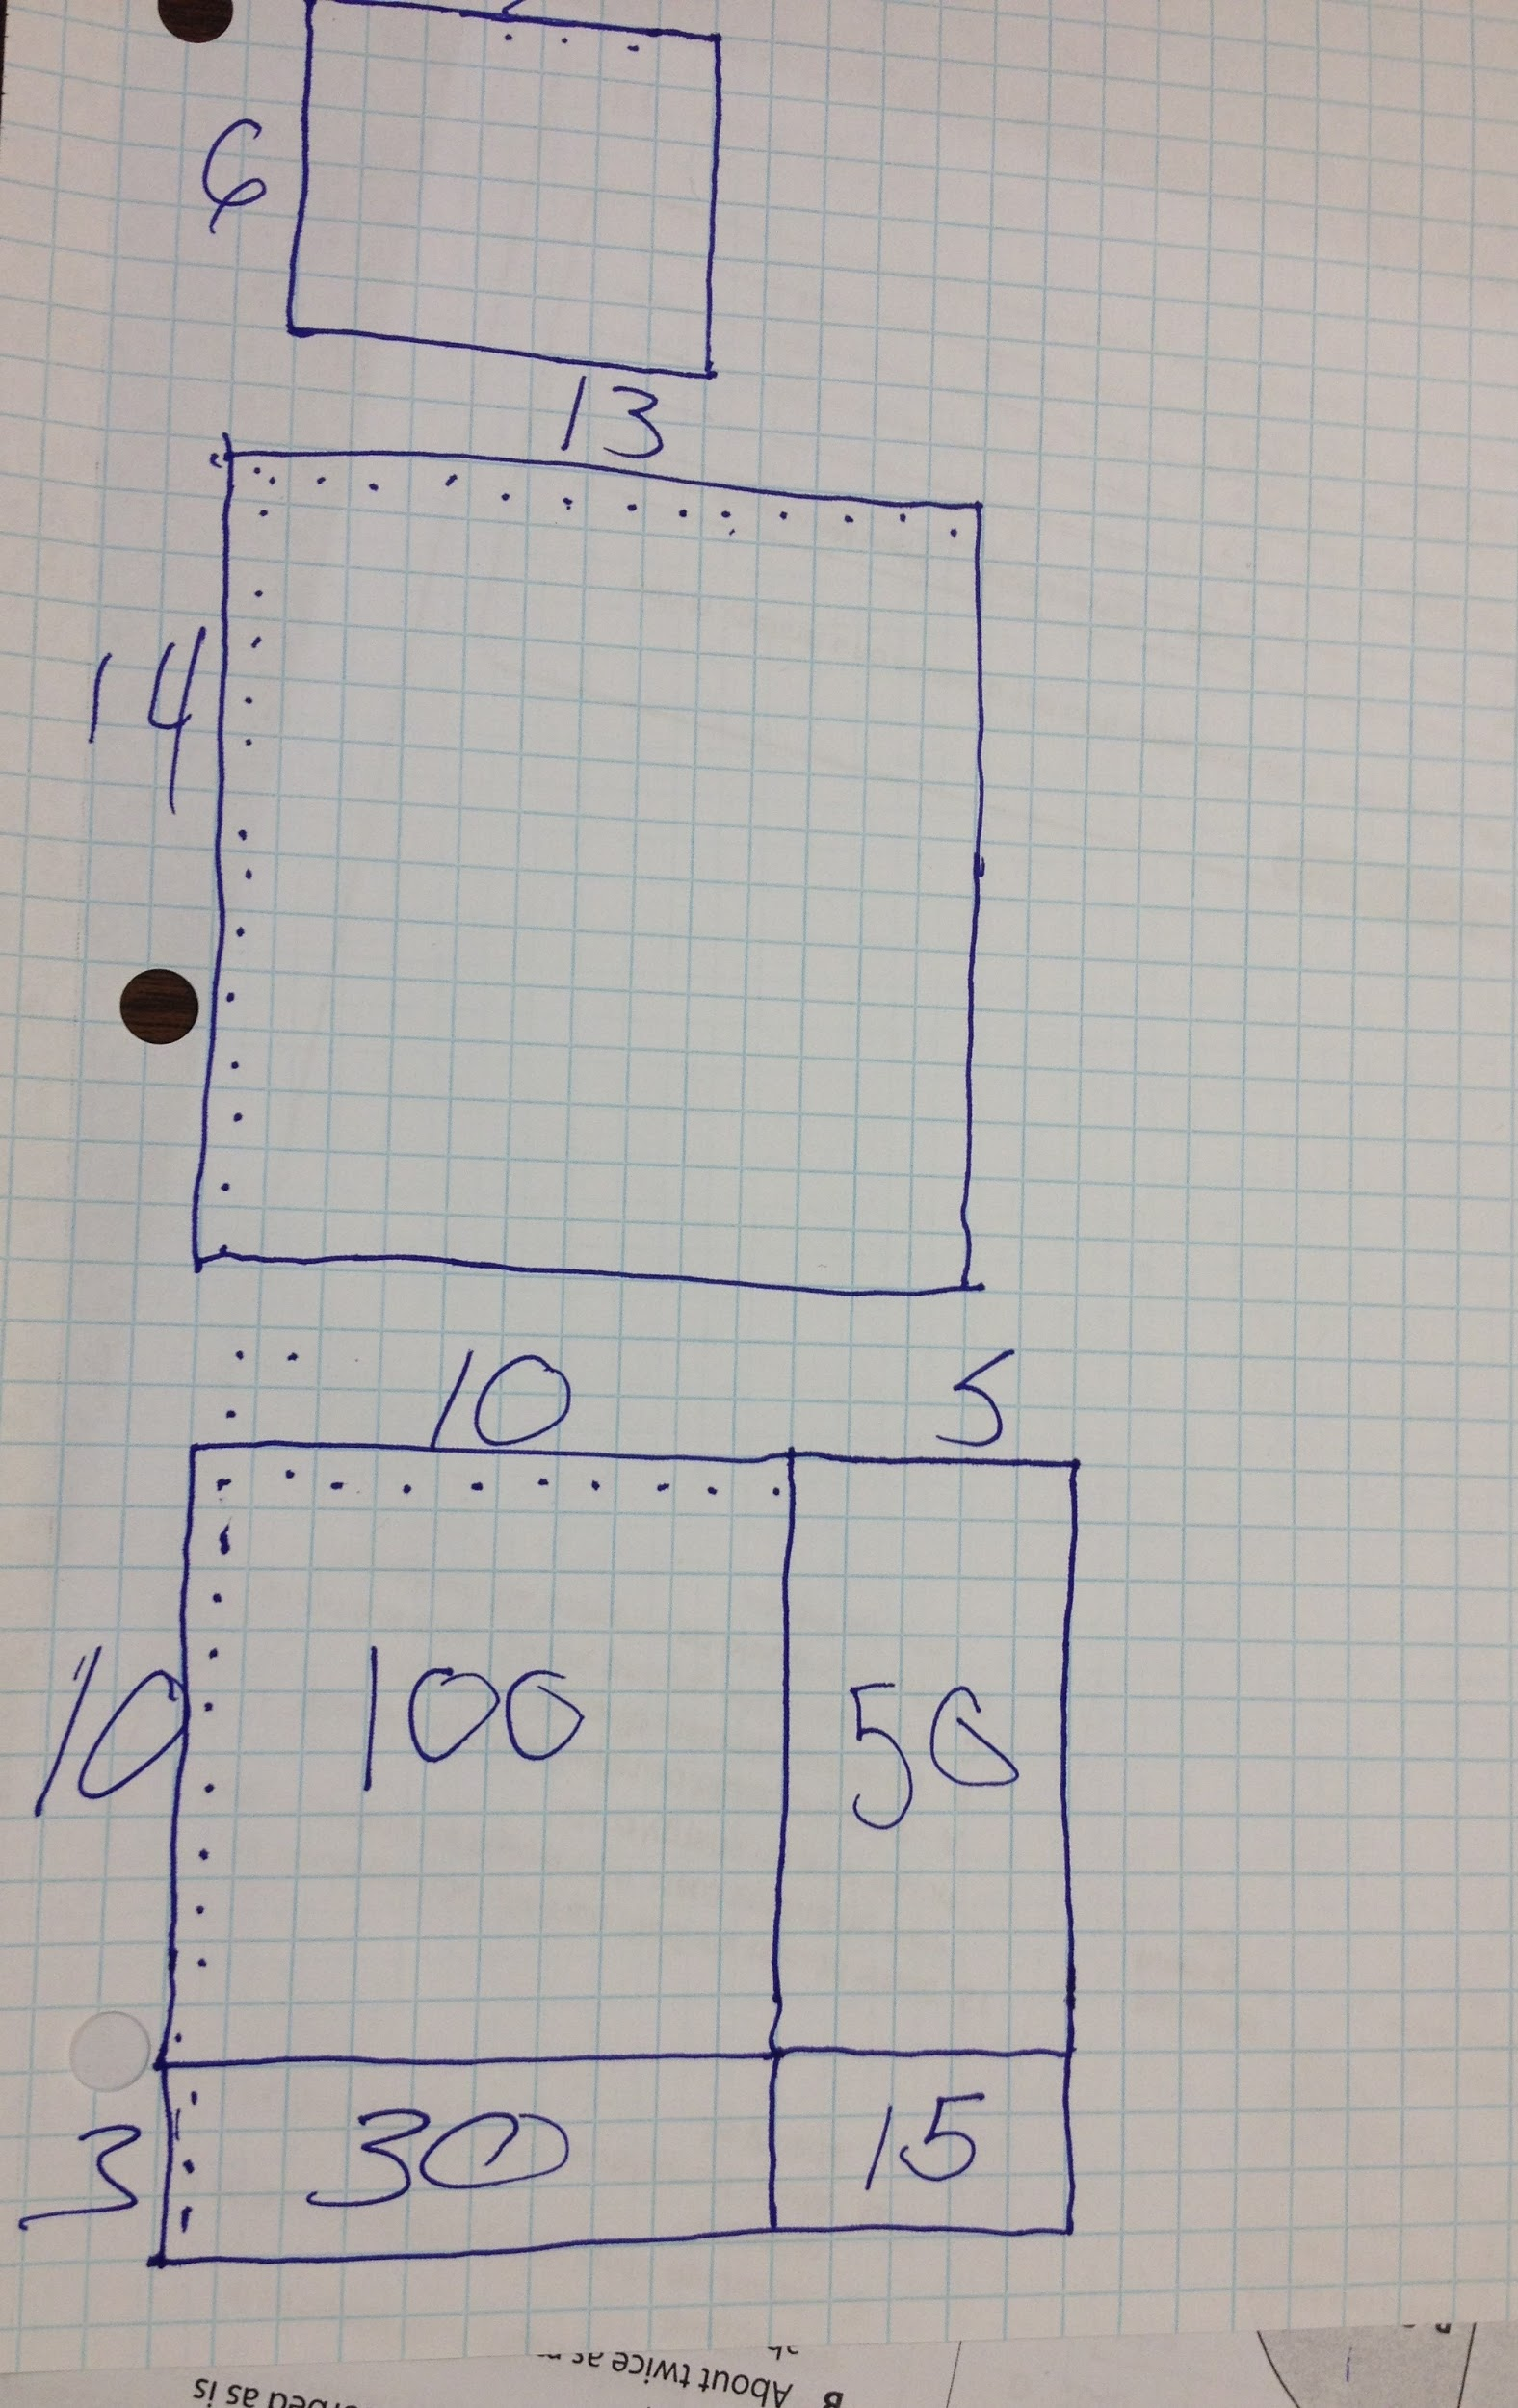 6
13
14
10 5
10 100 50
3 30 15
B About twice as
as is